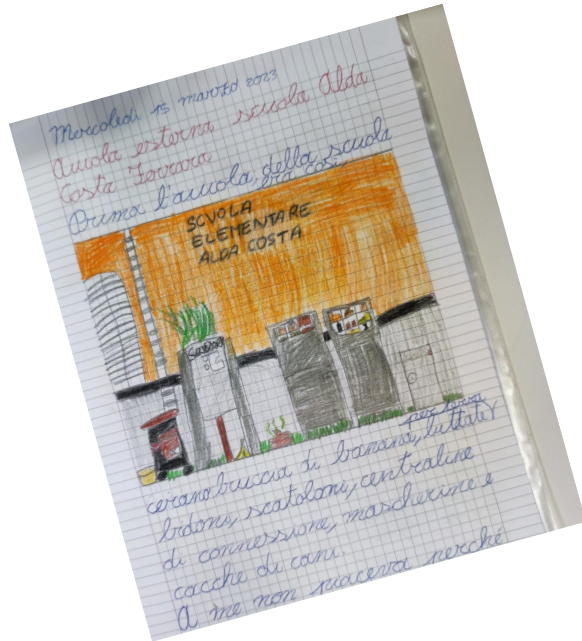 Mercoledì 15 marzo 2023
Auiola esterna scuola Alda
Costa Ferrara
Prima l'auiola della scuola
era così
SCUOLA
ELEMENTARE
ALDA COSTA
per terra
cerano buccia di banana, buttati
bidoni, scatoloni, centraline
di connessione, mascherine e
cacche di cani.
A me non piaceva perché